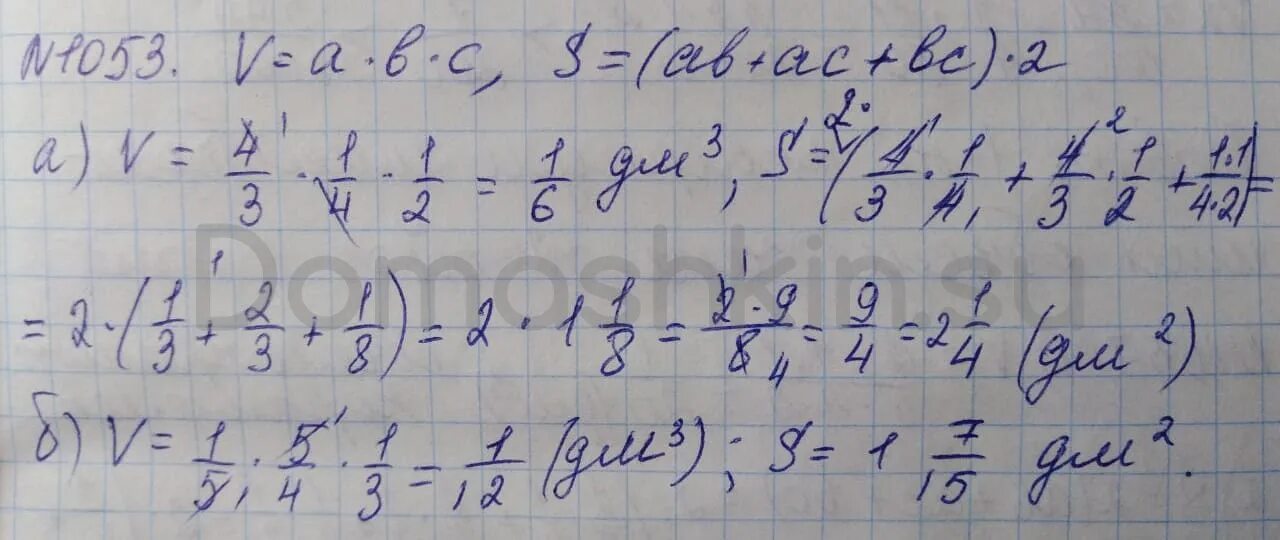 N1053. V=a·b·c, S=(ab+ac+bc)·2
а) V = 4/3 · 1/4 · 1/2 = 1/6 дм³, S=2·(4/3 · 1/4 + 4/3 · 1/2 + 1·1/4·2)=
= 2·(1/3 + 2/3 + 1/8) = 2 · 1 1/8 = 2·9/8 = 9/4 = 2 1/4 (дм²)
б) V = 1/5 · 5/4 · 1/3 = 1/12 (дм³); S = 1 7/15 дм².
Domoshkin.su